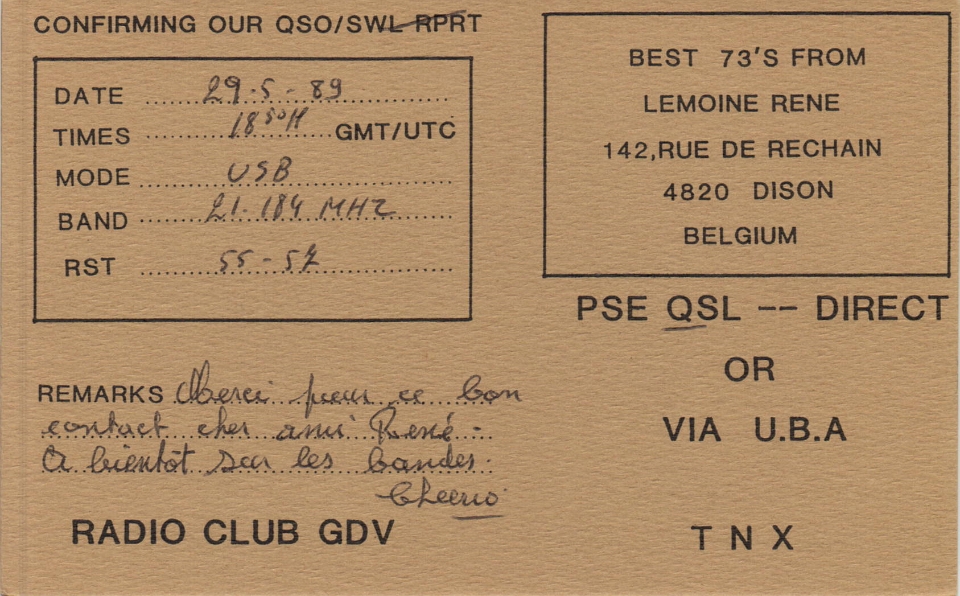 CONFIRMING OUR QSO/SWL RPRT
DATE 29-5-89
TIMES 18 50H GMT/UTC
MODE USB
BAND 21.184 MHZ
RST 55 - 57
REMARKS Merci pour ce bon
contact cher ami René.
A bientôt sur les bandes.
Cheerio
RADIO CLUB GDV
BEST 73'S FROM
LEMOINE RENE
142,RUE DE RECHAIN
4820 DISON
BELGIUM
PSE QSL -- DIRECT
OR
VIA U.B.A
TNX